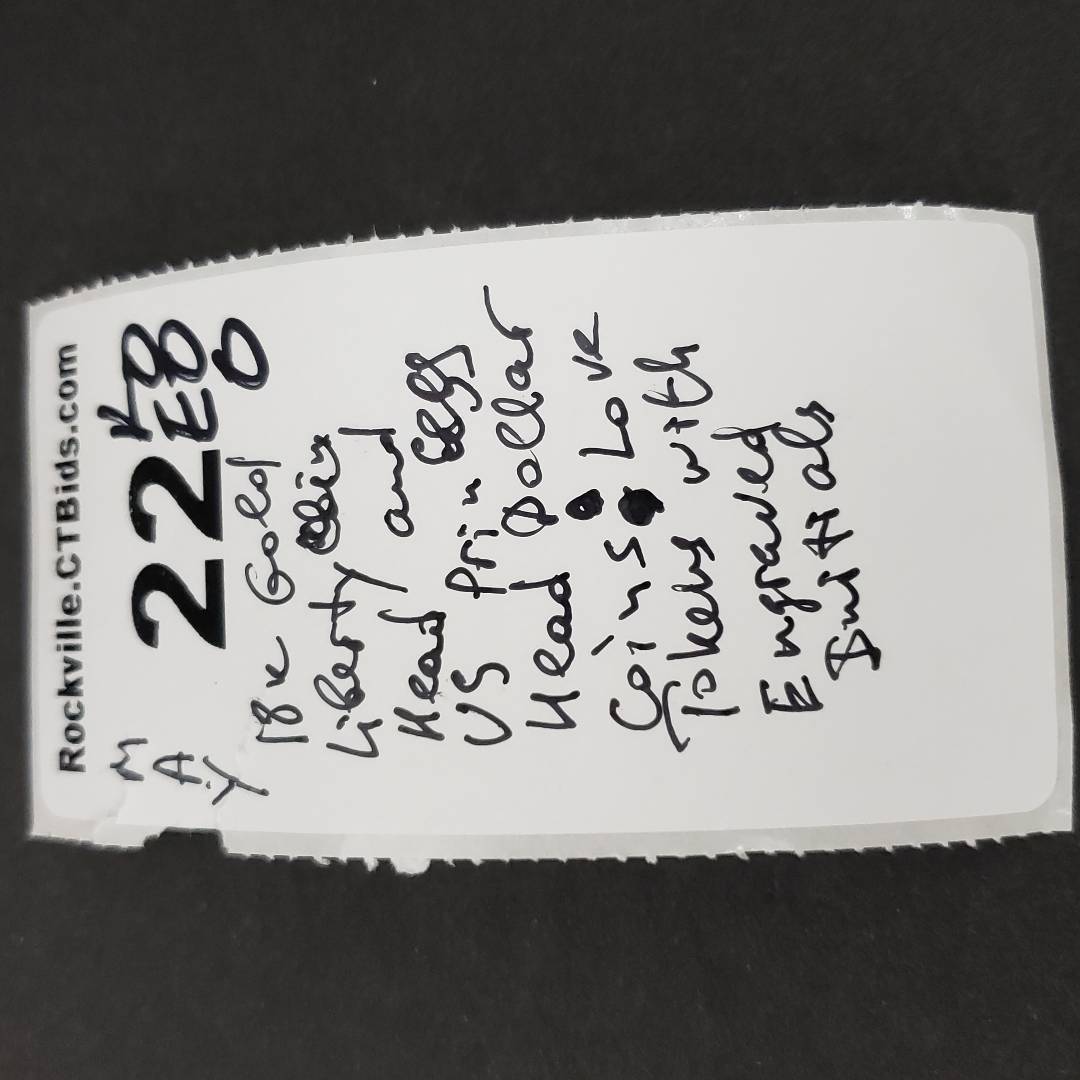 Rockville.CTBids.com
MAY 22 KB
EO
18k Gold
Liberty
Head and
US Prin
Head Dollar
Coins Love
Tokens with
Engraved
Initials